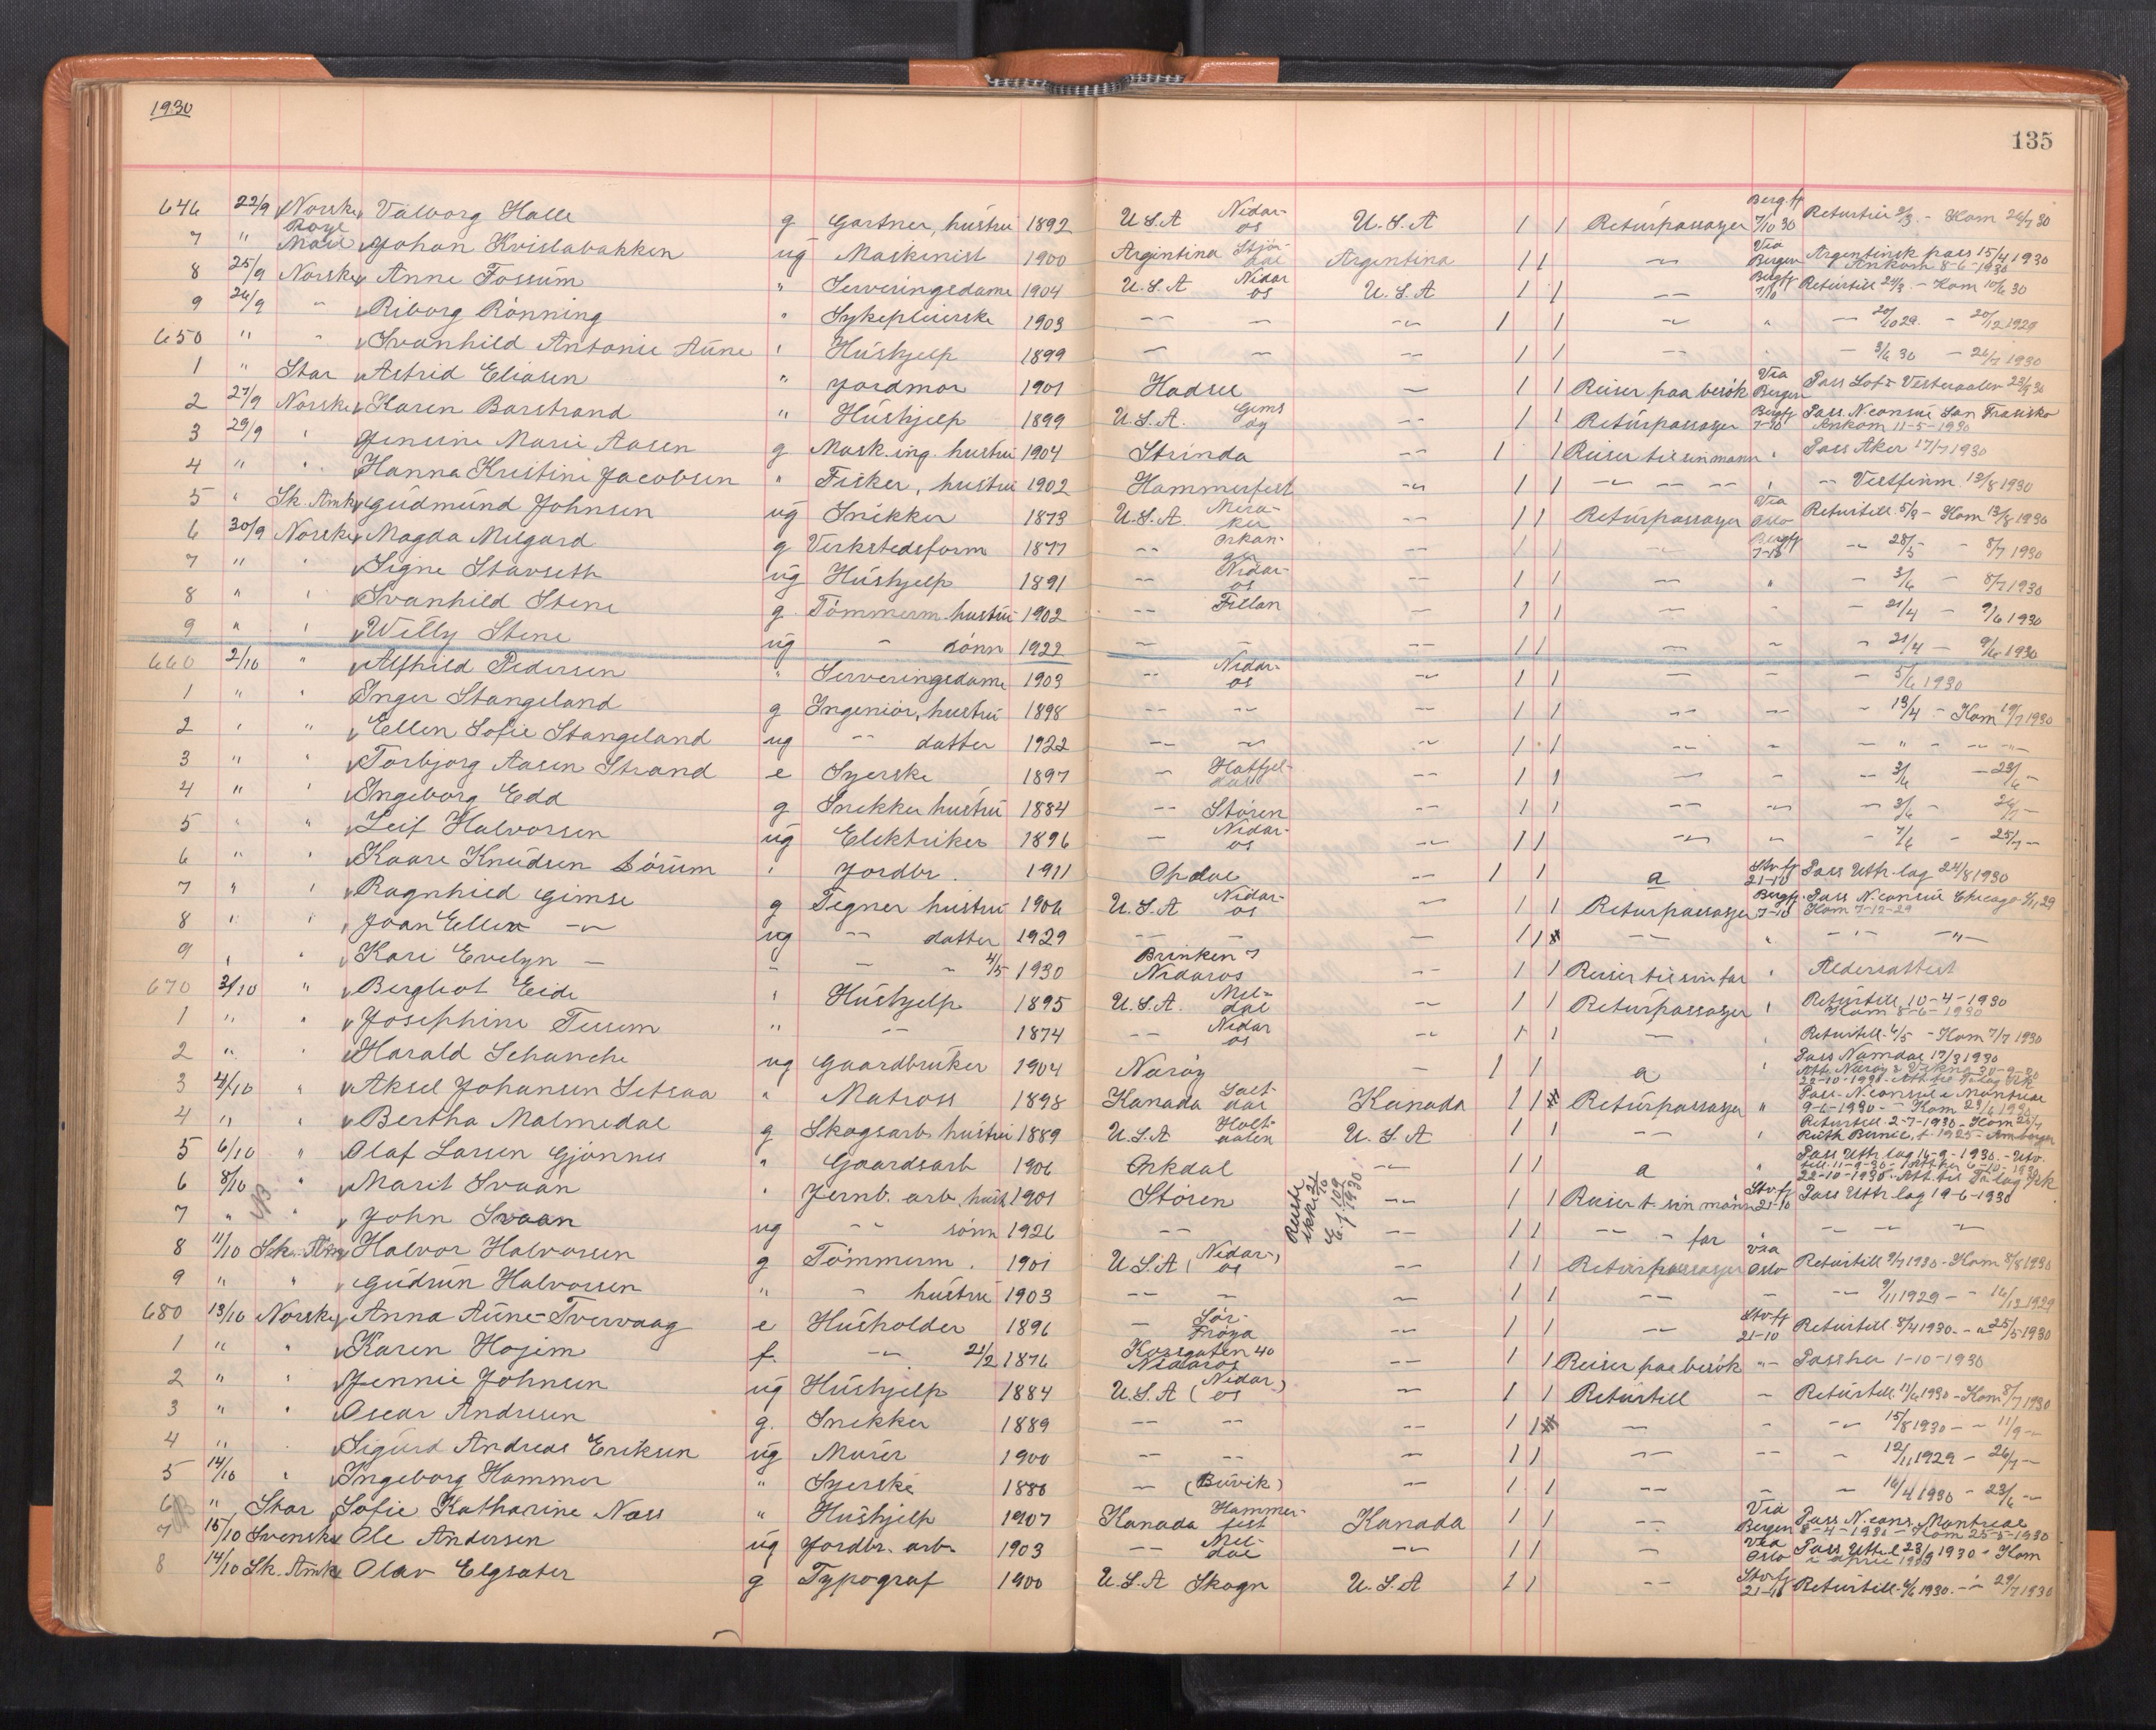 1930
135
646 22/9 Norske Valborg Halle g Gartner, hustru 1892 U.S.A Nidaros U.S.A 1 1 Returpassasjer Berg.fj 7/10 30 Returtill 2/3 - Kom 24/7 30
7 " Roya Mail Johan Kvislabakken ug Maskinist 1900 Argintina Stjördal Argentina 1 1 -"- Via Bergen Argentinsk pass 15/4 1930 Ankom 8-6-1930
8 25/9 Norske Anne Fossum " Serveringsdame 1904 U.S.A Nidaros U.S.A 1 1 -- Bergfj 7/10 Returtill 24/9 - Kom 10/6 30
9 26/9 " Riborg Rönning " Sykepleierske 1903 -- - -"- 1 1 -"- " - 20/10 29. - 20/12 1929
650 " " Svanhild Antonie Aune " Hushjelp 1899 - -- -- 1 1 -- " - 3/6 30 - 26/7 1930
1 " Star Astrid Eliasen " Jordmor 1901 Hadsel - 1 1 Reiser paa besök Via Bergen Pass Lof- Vesteraalen 23/9 30
2 27/9 Norske Karen Barstrand " Hushjelp 1899 U.S.A. Gims öy -- 1 1 Returpassasjer Bergfj 7-10 Pass. N.consul San Frasisko Ankom 11-5-1930
3 29/9 " Jensine Marie Aasen g Mask.ing. hustru 1904 Strinda -- 1 1 Reiser til sin mann " Pass Aker 17/7 1930
4 " " Hanna Kristine Jacobsen " Fisker, hustru 1902 Hammerfest -"- 1 1 -- -- -- " - Vestfinm. 12/8 1930
5 " Sk. Amk Gudmund Johnsen ug Snikker 1873 U.S.A. Meraker -- 1 1 Returpassasjer Via Oslo Returtill. 5/9 - Kom 13/8 1930
6 30/9 Norske Magda Melgard g Verkstedsform 1877 -- Orkanger -- 1 1 -- Bergfj 7-10 -"- 28/5 - 8/7 1930
7 " " Signe Stavseth ug Hushjelp 1891 -- Nidaros -- 1 1 -- " - 3/6 - 8/7 1930
8 " " Svanhild Stene g. Tömmerm. hustru 1902 -- Fillan - 1 1 -- - - 21/4 - 9/6 1930
9 " " Willy Stene ug - sönn 1922 - - -- 1 1 -- - - 21/4 - 9/6 1930
660 2/10 " Alfhild Pedersen " Serveringsdame 1903 -- Nidaros -"- 1 1 -- - - 5/6 1930
1 " " Inger Stangeland g Ingeniör, hustru 1898 -- -"- -- 1 1 -- -"- - 13/4 - Kom 19/7 1930
2 " " Ellen Sofie Stangeland ug -- datter 1922 -- -"- -"- 1 1 -"- - - " - -- -"-
3 " " Torbjorg Aasen Strand e Syerske 1897 - Hatfjeldal -- 1 1 -- - -- 3/6 - 23/6 -
4 " " Ingeborg Edd g Snekker hustru 1884 -- Stören -- 1 1 -- -"- - 3/6 - 26/7 -
5 " " Leif Halvorsen ug Elektriker 1896 - Nidaros -"- 1 1 -"- - - 7/6 - 25/7 -
6 " " Kaare Knudsen Sörum " Jordbr. 1911 Opdal -- 1 1 a Stavfj 21-10 Pass Uttr.lag 24/8 1930
7 " " Ragnhild Gimse g Tegner hustru 1906 U.S.A Nidaros -"- 1 1 Returpassasjer Bergfj. 7-10 Pass N.consul Chicago 5/11 29 Kom 7-12-29
8 " " Joan Ellen -"- ug -- datter 1929 -- -- - 1 1 -- " - " - -"-
9 " " Kari Evelyn - - - - 4/5 1930 Brinken 7 Nidaros -- 1 1 Reiser til sin far " Aldersattest
670 3/10 " Bergliot Eide " Hushjelp 1895 U.S.A. Meldal -"- 1 1 Returpassasjer " Returtill. 10-4-1930 Kom 8-6-1930
1 " " Josephine Tusem " -- 1874 -- Nidaros -"- 1 1 - " Returtill. 4/5 - Kom 7/7 1930
2 " " Harald Schanche ug Gaardbruker 1904 Naröy - 1 1 a " Pass Namdal 17/3 1930 Att. Naröy & Vikna 30-9-30 22-10-1930
3 4/10 " Aksel Johansen Setsaa " Matros 1898 Kanada Saltdal Kanada 1 1 Returpassasjer " Pass N.consul i Montreal 9-6-1930 - Kom 29/6 1930
4 " " Bertha Malmedal g Skogsarb. hustru 1889 U.S.A Holtaalen U.S.A 1 1 -- " Returtill. 2-7-1930 - Kom Ruth Bernie, f. 1925
5 6/10 " Olaf Larsen Gjönnes " Gaardsarb 1906 Orkdal -- 1 1 a " Pass Uttr.lag 16-9-1930. - Utv. till. 11-9-30 22-10-1930
6 8/10 " Marit Svaan " Jernb. arb. hust 1901 Stören -- 1 1 Reiser t. sin mann Stavfj 21-10 Pass Uttr.lag 19-6-1930
Reiste ikke 21/10 E.j. 109 1930.
7 " " John Svaan ug -- sönn 1926 -- -- 1 1 -- - far -- -- -
8 11/10 Sk. Am Halvor Halvorsen g Tömmerm. 1901 U.S.A (Nidaros) -- 1 1 Returpassasjer Via Oslo Returtill 9/7 1930 - Kom 8/8 1930
9 " " Gudrun Halvorsen " - hustru 1903 -- - - 1 1 -- - -- 9/11 1929 - - 16/12 1929
680 13/10 Norske Anna Aune-Tvervaag e Husholder 1896 - Sör-Fröya -- 1 1 -- Stavfj 21-10 Returtill. 8/4 1930 - - 25/5 1930
1 " " Karen Hojem f. -- 21/2 1876 Korsgaten 40 Nidaros -- 1 1 Reiser paa besök -"- Pass her 1-10-1930
2 " " Jennie Johnsen ug Hushjelp 1884 U.S.A (Nidaros) - 1 1 Returtill - Returtill. 12/6 1930 - Kom 8/7 1930
3 " " Oscar Andresen g. Snekker 1889 -- -- -- 1 1 - - -- 15/8 1930 - - 11/9 -
4 " " Sigurd Andreas Eriksen ug Murer 1900 -- -- - 1 1 -- -- - 12/11 1929 - 26/7 -
5 14/10 " Ingeborg Hammer " Syerske 1886 - (Buvik) - 1 1 -- - - 16/4 1930 - 23/6 -
6 " Star Sofie Katharine Næss " Hushjelp 1907 Kanada Hammerfest Kanada 1 1 -- Via Bergen Pass N.cons. Montreal 8-4-1930 - Kom 25-5-1930
7 15/10 Svenske Ole Andersen ug Jordbr. arb. 1903 -- Meldal -"- 1 1 - Via Oslo Pass Utt.l 23/9 1930 - Kom i april
8 14/10 Sk. Amk Olav Elgsater g Typograf 1900 U.S.A Skogn U.S.A 1 1 -- Stavfj 21-10 Returtill. 4/6 1930. - - 29/7 1930